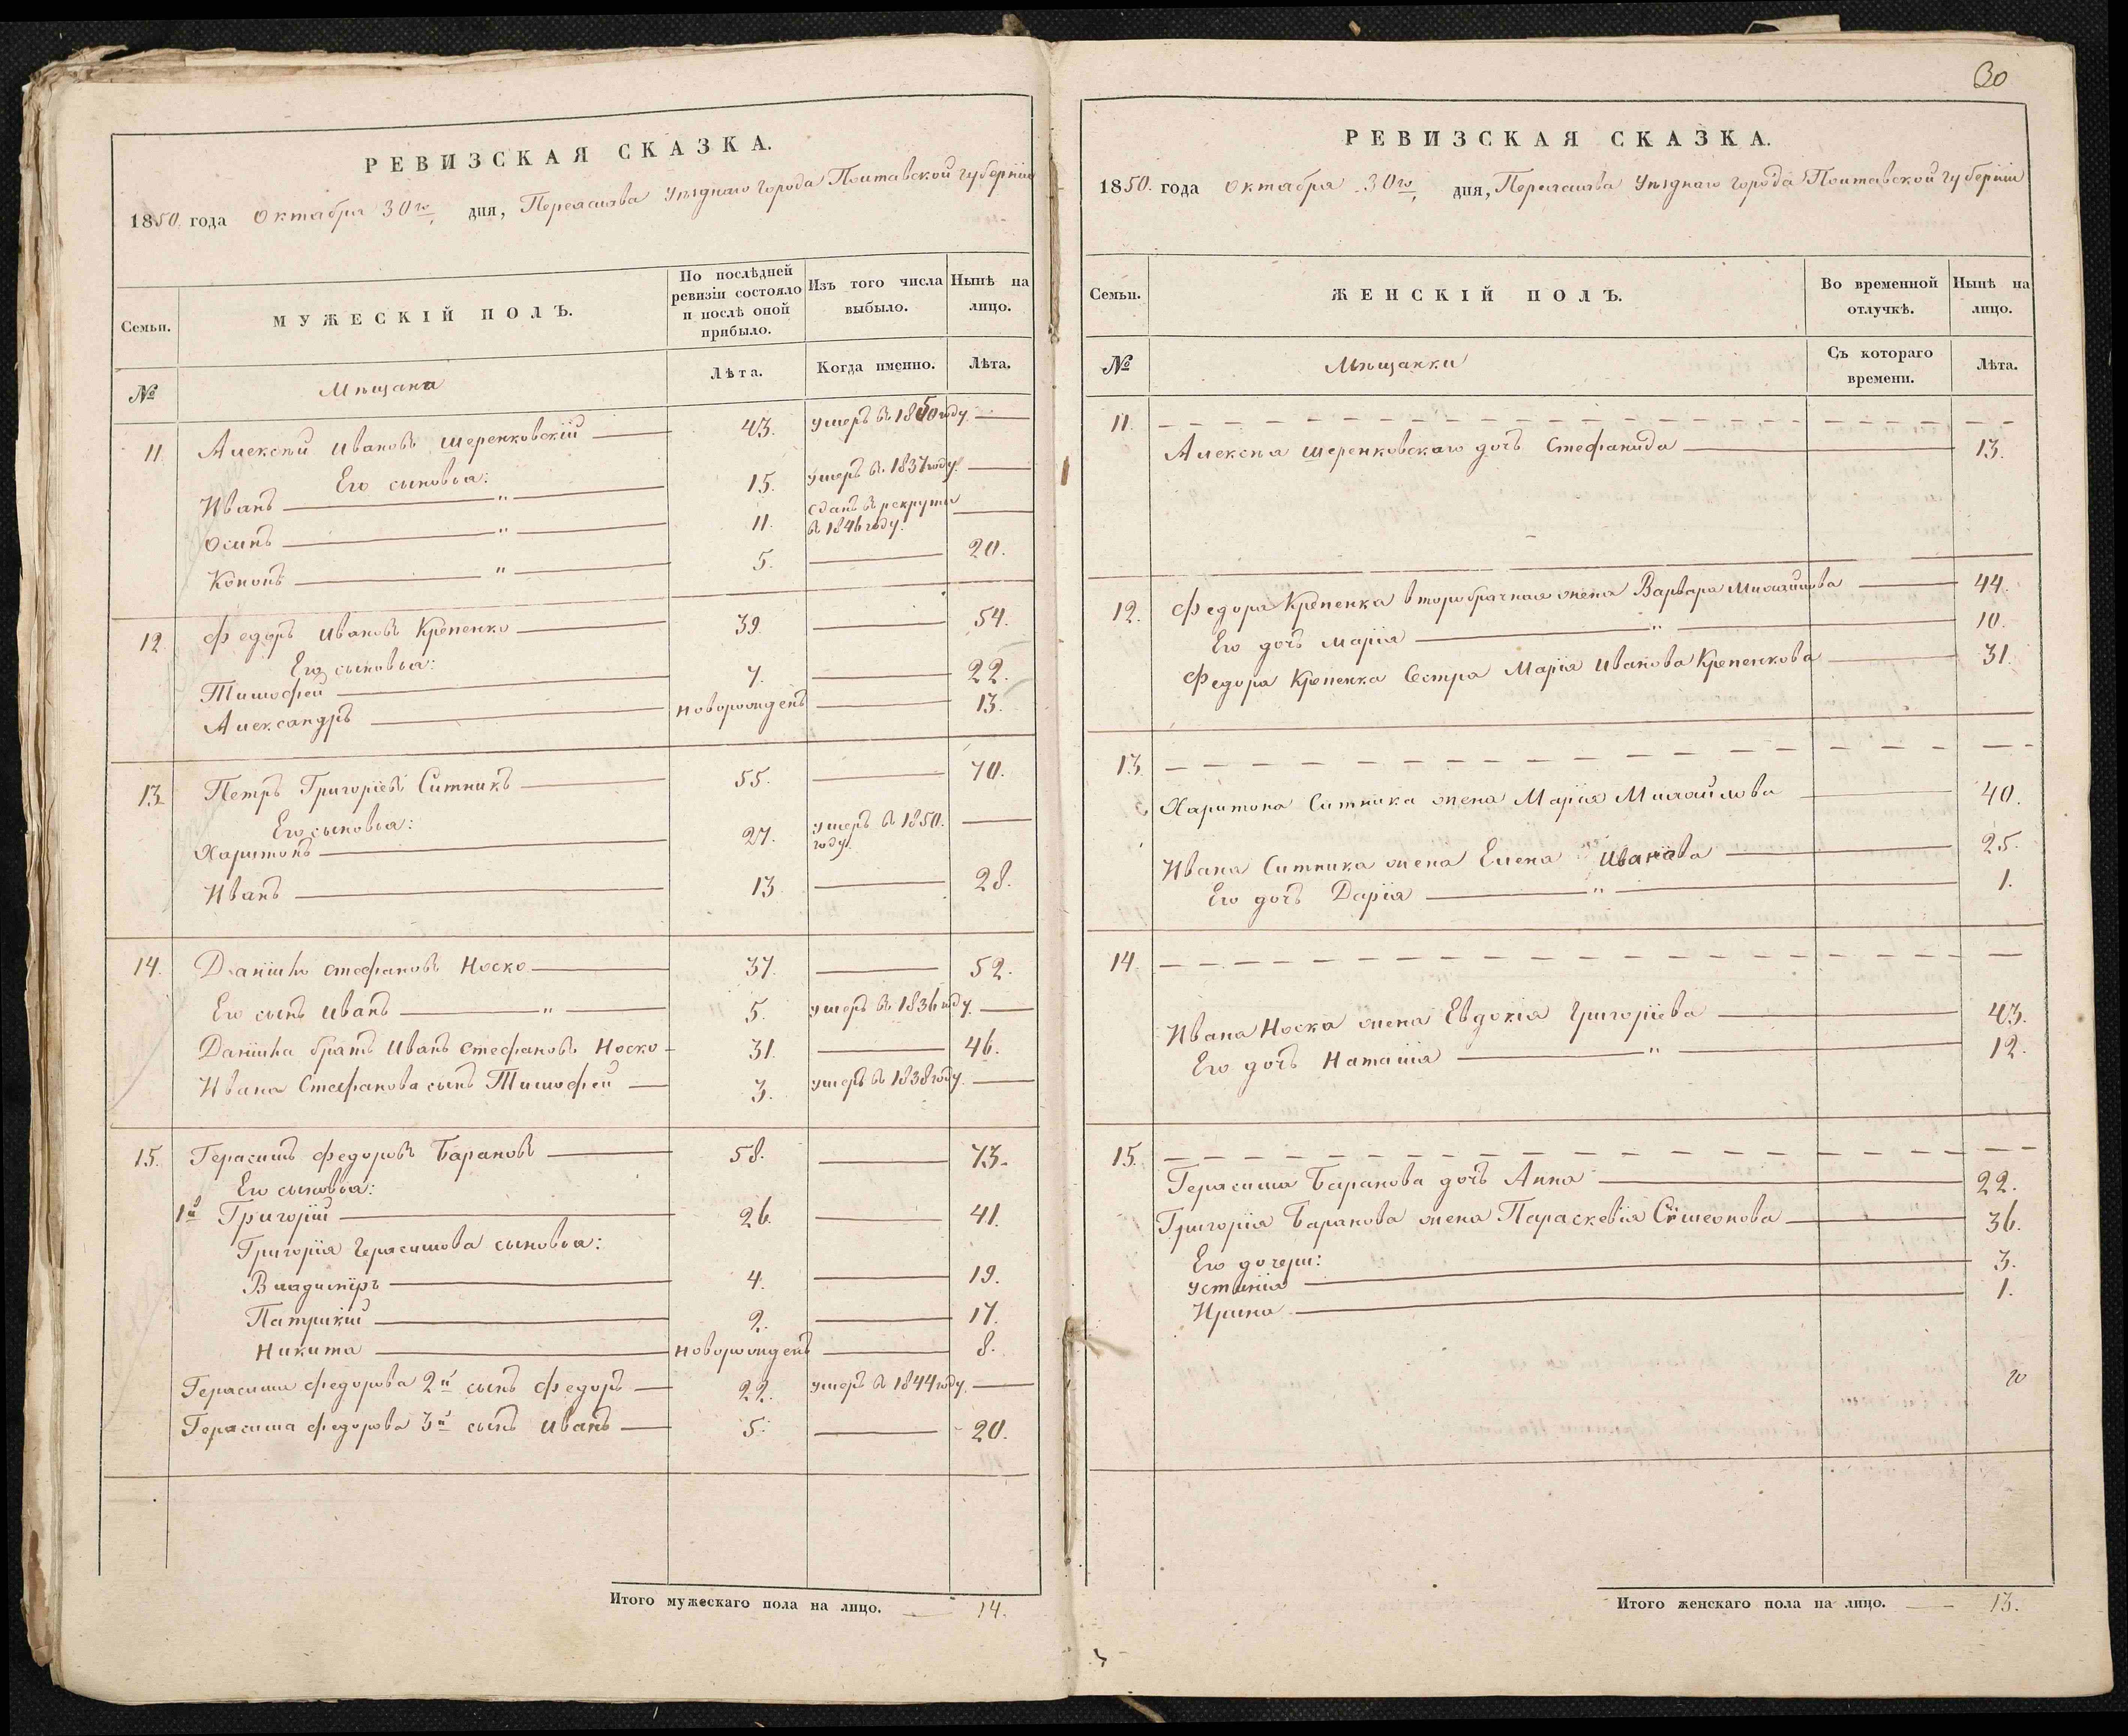 РЕВИЗСКАЯ СКАЗКА.
1850 года Октября 30го дня, Переяслова Уѣзднаго города Полтавской губерніи
Семьи.
МУЖЕСКІЙ ПОЛЪ.
По послѣдней ревизіи состояло и послѣ оной прибыло.
Изъ того числа выбыло.
Нынѣ на лицо.
№
Мѣщане
Лѣта.
Когда именно.
Лѣта.
11 Алексѣй Ивановъ Шеренковскій 43. умеръ въ 1850 году.
Его сыновья:
Иванъ " 15. умеръ въ 1837 году.
Осипъ " 11. сданъ въ рекруты въ 1846 году.
Кононъ " 5. 20.
12 Федоръ Ивановъ Крепенко 39. 54.
Его сыновья:
Тимофей 7. 22.
Александръ новорожденъ 13.
13. Петръ Григоріевъ Ситникъ 55. 70.
Его сыновья:
Харитонъ 27. умеръ въ 1850. году.
Иванъ 13 28.
14. Даніилъ Стефановъ Носко 37. 52.
Его сынъ Иванъ " 5. умеръ въ 1836 году.
Даніила братъ Иванъ Стефановъ Носко 31. 46.
Ивана Стефанова сынъ Тимофей 3. умеръ въ 1838 году.
15. Герасимъ Федоровъ Барановъ 58. 73.
Его сыновья:
1й Григорій 26. 41.
Григорія Герасимова сыновья:
Владиміръ 4. 19.
Патрикій 2. 17.
Никита новорожденъ 8.
Герасима Федорова 2й сынъ Федоръ 22. умеръ въ 1844 году.
Герасима Федорова 3й сынъ Иванъ 5. 20.
Итого мужескаго пола на лицо. 14.
30
РЕВИЗСКАЯ СКАЗКА.
1850. года Октября 30го, дня, Переяслова Уѣзднаго города Полтавской губерніи
Семьи.
ЖЕНСКІЙ ПОЛЪ.
Во временной отлучкѣ.
Нынѣ на лицо.
№
Мѣщанки
Съ котораго времени.
Лѣта.
11.
Алексѣя Шеренковскаго дочь Стефанида 13.
12. Федора Крепенка второбрачная жена Варвара Михайлова 44.
Его дочь Марія " 10.
Федора Крепенка Сестра Марія Иванова Крепенкова 31.
13.
Харитона Ситника жена Марія Михайлова 40.
Ивана Ситника жена Елена Иванова 25.
Его дочь Дарія " 1.
14.
Ивана Носка жена Евдокія Григоріева 43.
Его дочь Наталія " 12.
15.
Герасима Баранова дочь Анна 22.
Григорія Баранова жена Параскевія Симеонова 36.
Его дочери:
Устинія 3.
Ирина 1.
Итого женскаго пола на лицо. 13.